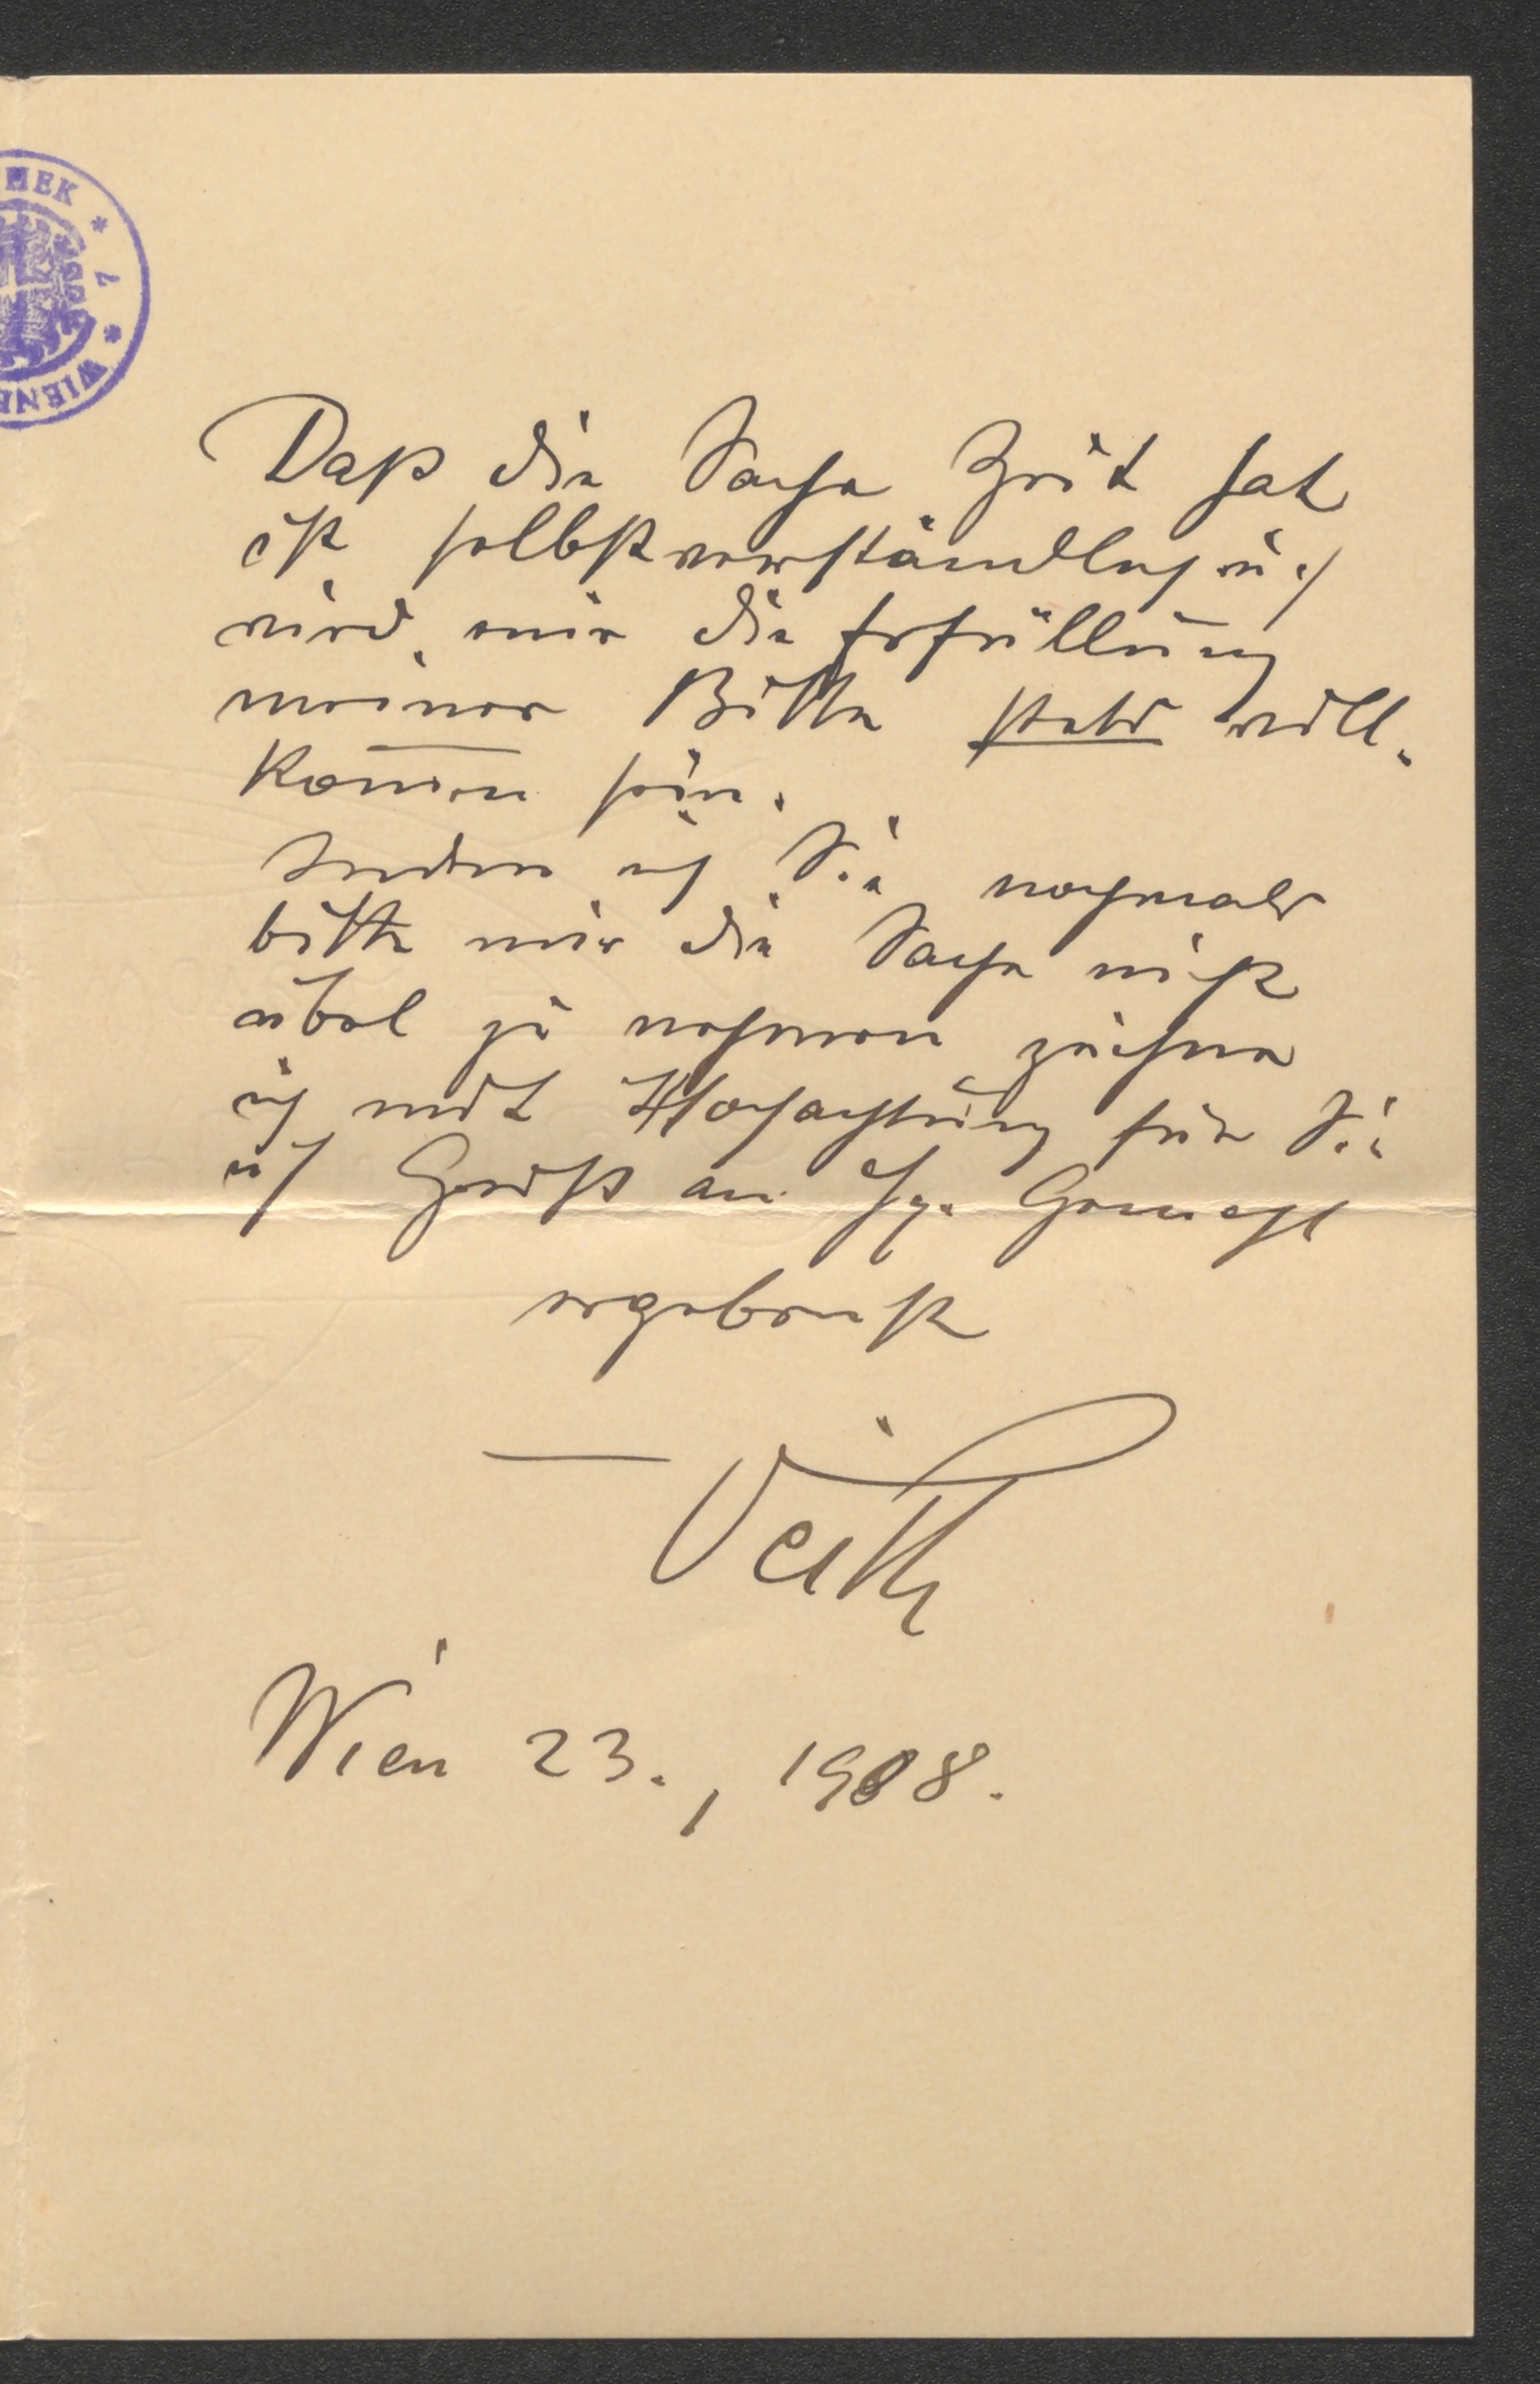 HEK * 7 * WIENE
Daß die Sache Zeit hat
ist selbstverständlich u.
wird mir die Erfüllung
meiner Bitte stets will-
kommen sein.
Indem ich Sie nochmals
bitte mir die Sache nicht
übel zu nehmen zeichne
ich mit Hochachtung für Sie
u. Gruß an Hg. Gemahl
ergebenst
Veith
Wien 23., 1908.